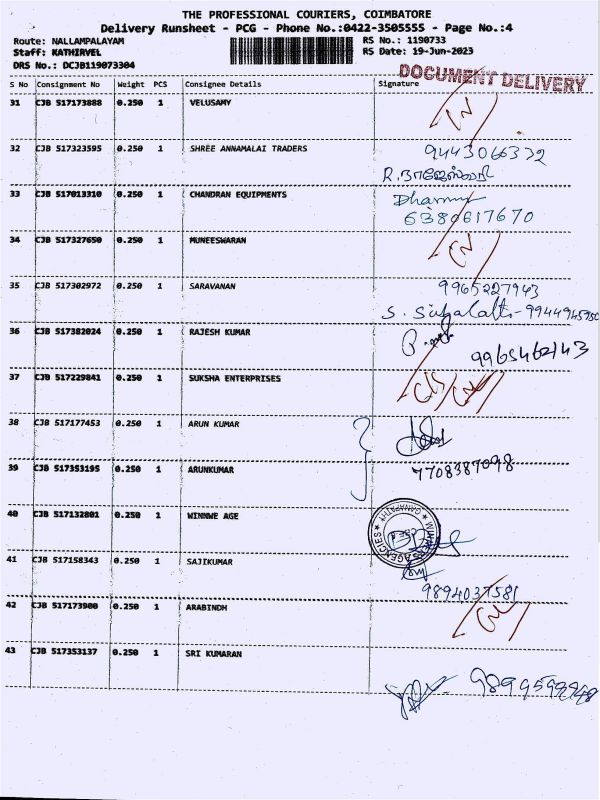 THE PROFESSIONAL COURIERS, COIMBATORE
Delivery Runsheet - PCG - Phone No.:0422-3505555 - Page No.:4
Route: NALLAMPALAYAM RS No.: 1190733
Staff: KATHIRVEL RS Date: 19-Jun-2023
DRS No.: DCJB119073304
DOCUMENT DELIVERY
S No Consignment No Weight PCS Consignee Details Signature
31 CJB 517173888 0.250 1 VELUSAMY
32 CJB 517323595 0.250 1 SHREE ANNAMALAI TRADERS 9443066372
R. ராஜேஸ்வரி
33 CJB 517013310 0.250 1 CHANDRAN EQUIPMENTS
6380617670
34 CJB 517327650 0.250 1 MUNEESWARAN
35 CJB 517302972 0.250 1 SARAVANAN 9965227943
36 CJB 517382024 0.250 1 RAJESH KUMAR 9965462143
37 CJB 517229841 0.250 1 SUKSHA ENTERPRISES
38 CJB 517177453 0.250 1 ARUN KUMAR
39 CJB 517353195 0.250 1 ARUNKUMAR 7708387098
40 CJB 517132801 0.250 1 WINNWE AGE
41 CJB 517158343 0.250 1 SAJIKUMAR
9894037581
42 CJB 517173900 0.250 1 ARABINDH
43 CJB 517353137 0.250 1 SRI KUMARAN